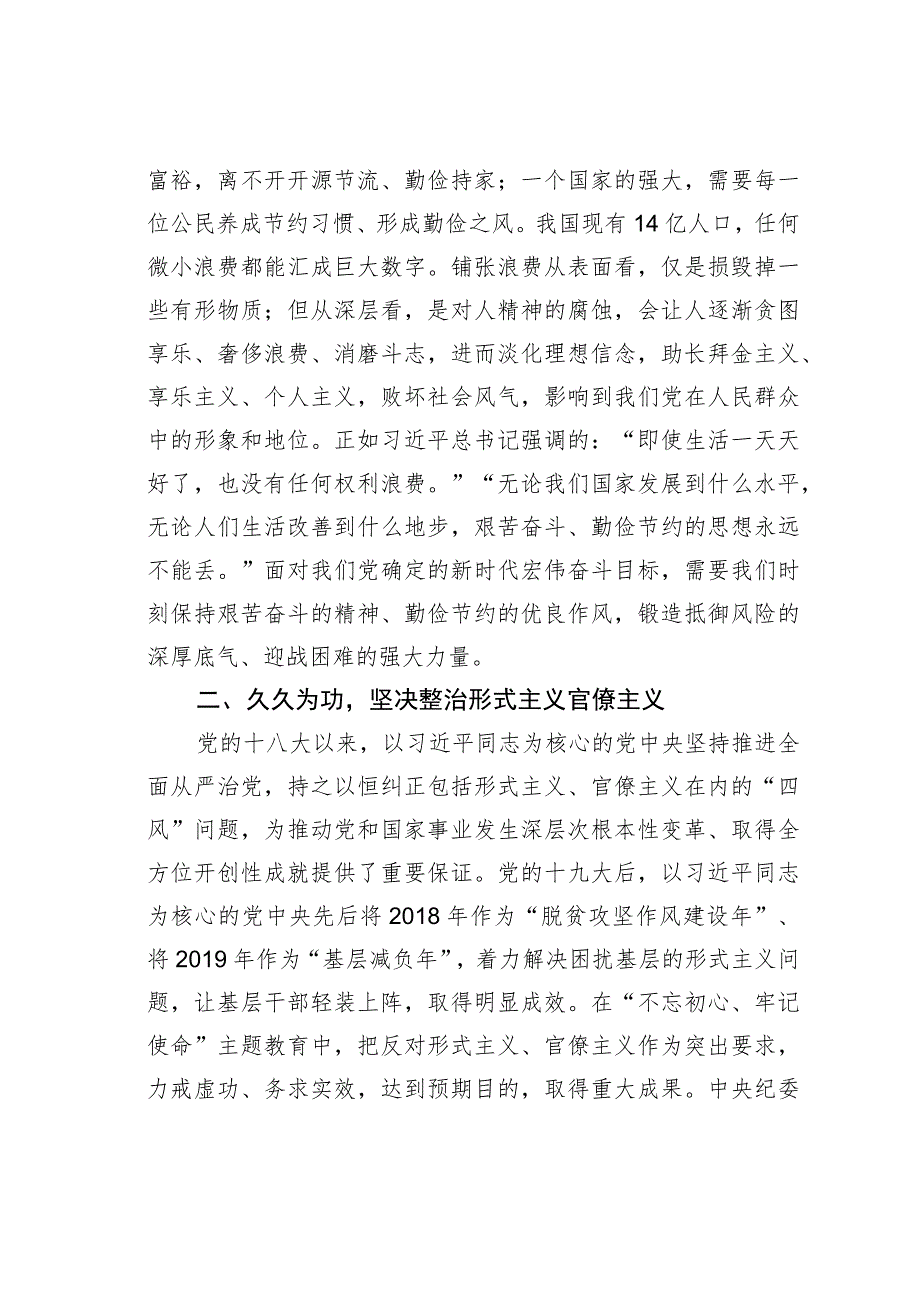 富裕，离不开开源节流、勤俭持家；一个国家的强大，需要每一
位公民养成节约习惯、形成勤俭之风。我国现有 14 亿人口，任何
微小浪费都能汇成巨大数字。铺张浪费从表面看，仅是损毁掉一
些有形物质；但从深层看，是对人精神的腐蚀，会让人逐渐贪图
享乐、奢侈浪费、消磨斗志，进而淡化理想信念，助长拜金主义、
享乐主义、个人主义，败坏社会风气，影响到我们党在人民群众
中的形象和地位。正如习近平总书记强调的：“即使生活一天天
好了，也没有任何权利浪费。”“无论我们国家发展到什么水平，
无论人们生活改善到什么地步，艰苦奋斗、勤俭节约的思想永远
不能丢。”面对我们党确定的新时代宏伟奋斗目标，需要我们时
刻保持艰苦奋斗的精神、勤俭节约的优良作风，锻造抵御风险的
深厚底气、迎战困难的强大力量。
二、久久为功，坚决整治形式主义官僚主义
党的十八大以来，以习近平同志为核心的党中央坚持推进全
面从严治党，持之以恒纠正包括形式主义、官僚主义在内的“四
风”问题，为推动党和国家事业发生深层次根本性变革、取得全
方位开创性成就提供了重要保证。党的十九大后，以习近平同志
为核心的党中央先后将 2018 年作为“脱贫攻坚作风建设年”、
将 2019 年作为“基层减负年”，着力解决困扰基层的形式主义问
题，让基层干部轻装上阵，取得明显成效。在“不忘初心、牢记
使命”主题教育中，把反对形式主义、官僚主义作为突出要求，
力戒虚功、务求实效，达到预期目的，取得重大成果。中央纪委